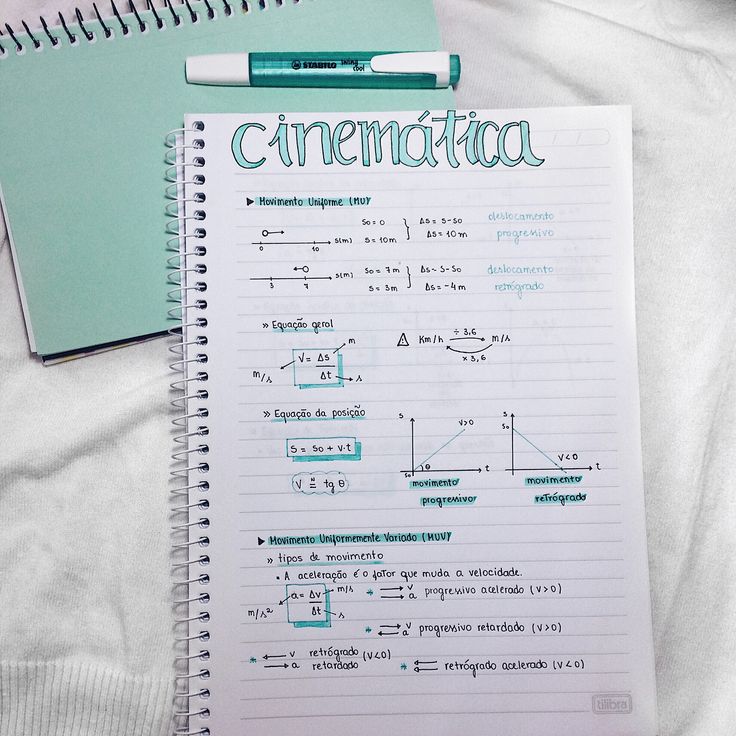 STABILO swing cool
cinemática
▶ Movimento Uniforme (MU)
0 10 S(m)
S0 = 0
S = 10m
ΔS = S-S0
ΔS = 10m
deslocamento
progressivo
3 7 S(m)
S0 = 7m
S = 3m
ΔS = S-S0
ΔS = -4m
deslocamento
retrógrado
» Equação geral
V = ΔS/Δt
m
m/s
s
⚠ Km/h ÷ 3,6 m/s
x 3,6
» Equação da posição
S = S0 + v.t
V N= tg θ
S
V>0
S0 θ t
movimento
progressivo
S
S0
V<0
t
movimento
retrógrado
▶ Movimento Uniformemente Variado (MUV)
» tipos de movimento
• A aceleração é o fator que muda a velocidade.
a = Δv/Δt
m/s
m/s²
s
* → v
→ a
progressivo acelerado (v>0)
* → v
← a
progressivo retardado (v>0)
* ← v retrógrado (v<0)
→ a retardado
* ←
← retrógrado acelerado (v<0)
tilibra